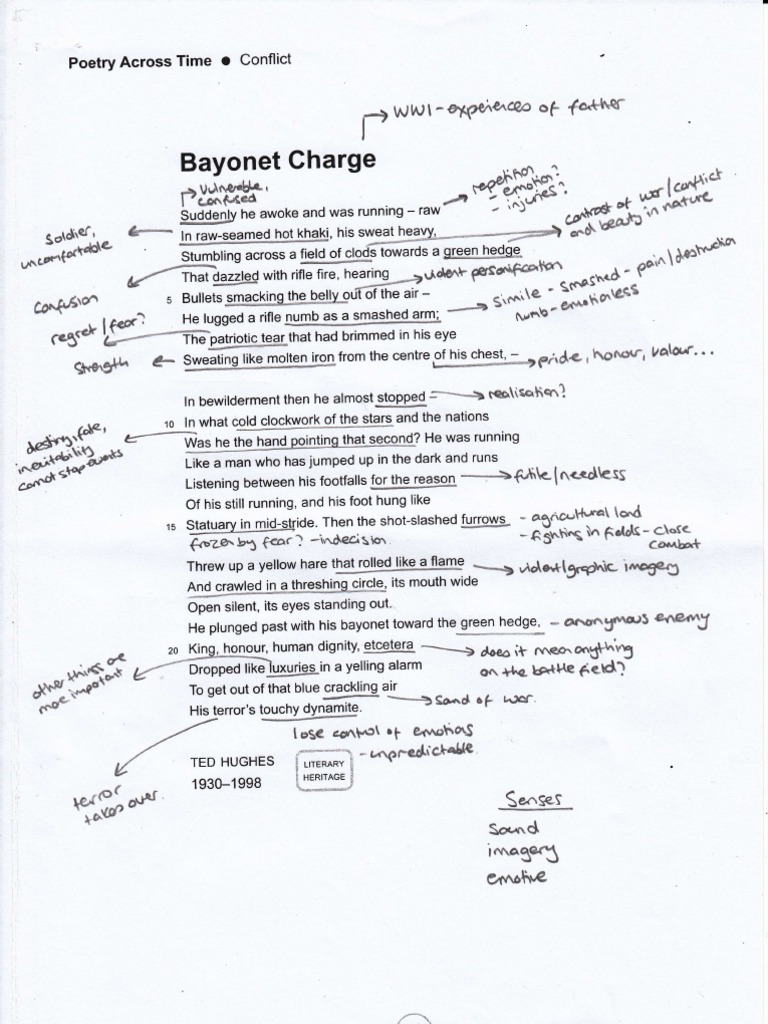 Poetry Across Time ● Conflict
WW1 - experiences of father
Bayonet Charge
Vulnerable,
confused
repetition
- emotion?
- injuries?
Suddenly he awoke and was running – raw
Soldier,
uncomfortable
In raw-seamed hot khaki, his sweat heavy,
contrast of war/conflict
and beauty in nature
Stumbling across a field of clods towards a green hedge
That dazzled with rifle fire, hearing
violent personification
Confusion
5 Bullets smacking the belly out of the air –
He lugged a rifle numb as a smashed arm;
simile - smashed - pain/destruction
numb - emotionless
regret/fear?
The patriotic tear that had brimmed in his eye
Strength
Sweating like molten iron from the centre of his chest, –
pride, honour, valour...
In bewilderment then he almost stopped –
realisation?
10 In what cold clockwork of the stars and the nations
destiny, fate,
inevitability
cannot stop events
Was he the hand pointing that second? He was running
Like a man who has jumped up in the dark and runs
Listening between his footfalls for the reason
futile/needless
Of his still running, and his foot hung like
15 Statuary in mid-stride. Then the shot-slashed furrows
- agricultural land
- fighting in fields - close
combat
frozen by fear? - indecision
Threw up a yellow hare that rolled like a flame
violent/graphic imagery
And crawled in a threshing circle, its mouth wide
Open silent, its eyes standing out.
He plunged past with his bayonet toward the green hedge,
- anonymous enemy
20 King, honour, human dignity, etcetera
does it mean anything
on the battle field?
other things are
more important
Dropped like luxuries in a yelling alarm
To get out of that blue crackling air
Sand of war.
His terror's touchy dynamite.
lose control of emotions
- unpredictable
terror
takes over.
TED HUGHES
1930–1998
LITERARY
HERITAGE
Senses
Sound
imagery
emotive